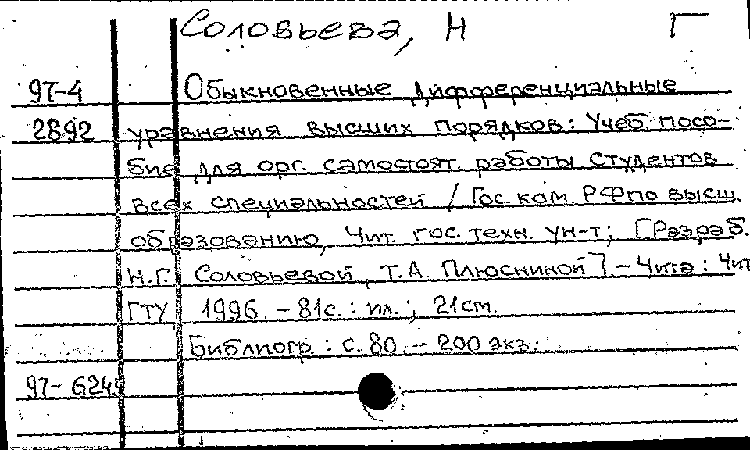 Соловьева, Н Г
97-4 Обыкновенные дифференциальные
2892 уравнения высших порядков: Учеб. посо-
бие для орг. самостоят. работы студентов
всех специальностей / Гос. ком. РФ по высш.
образованию, Чит. гос. техн. ун-т; [Разраб.
Н.Г. Соловьевой, Т.А. Плюсниной] - Чита: Чит
ГТУ 1996 - 81с.: ил.; 21см.
Библиогр.: с. 80 - 200 экз.
97-6249